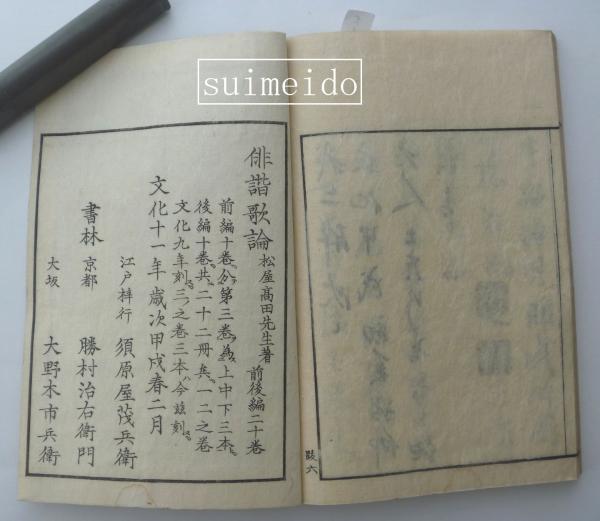 suimeido
俳諧歌論 松屋高田先生著 前後編二十巻
前編十巻分第三巻為上中下三本
後編十巻共二十二冊 一二之巻
文化九年刻 三之巻三本今茲刻
文化十一年歳次甲戌春二月
江戸梓行 須原屋茂兵衛
書林 京都 勝村治右衛門
大坂 大野木市兵衛
跋六